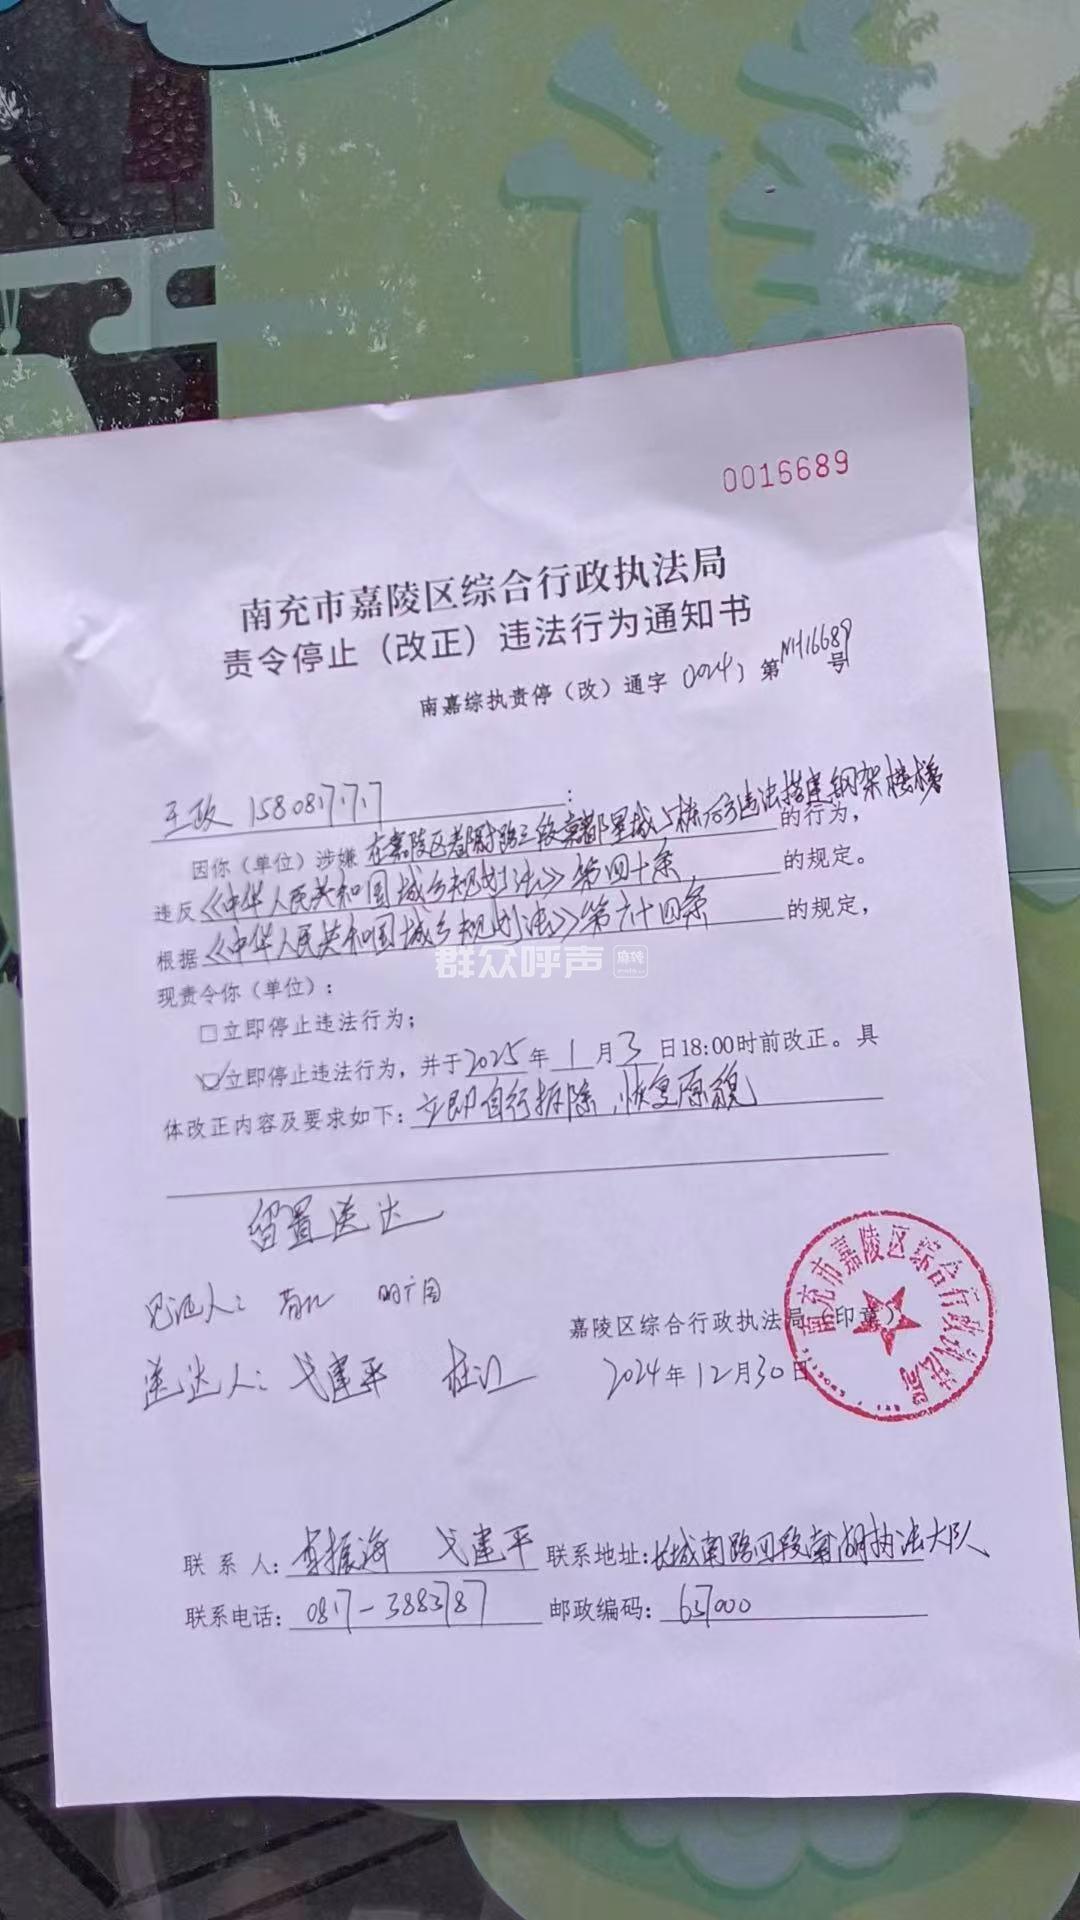 0016689
南充市嘉陵区综合行政执法局
责令停止（改正）违法行为通知书
南嘉综执责停（改）通字（2024）第NH16689号
王政 15808177717：
因你（单位）涉嫌在嘉陵区都尉路三段京都星城5栋后方违法搭建钢架楼梯的行为，
违反《中华人民共和国城乡规划法》第四十条，的规定。
根据《中华人民共和国城乡规划法》第六十四条的规定，
现责令你（单位）：
□立即停止违法行为；
☑立即停止违法行为，并于2025年1月3日18:00时前改正。具
体改正内容及要求如下：立即自行拆除，恢复原貌
留置送达
见证人：
送达人：戈建平
嘉陵区综合行政执法局（印章）
2024年12月30日
南充市嘉陵区综合行政执法局
联系人：李振海 戈建平 联系地址：长城南路四段南湖执法大队
联系电话：0817-3883787 邮政编码：637000
群众呼声
麻辣